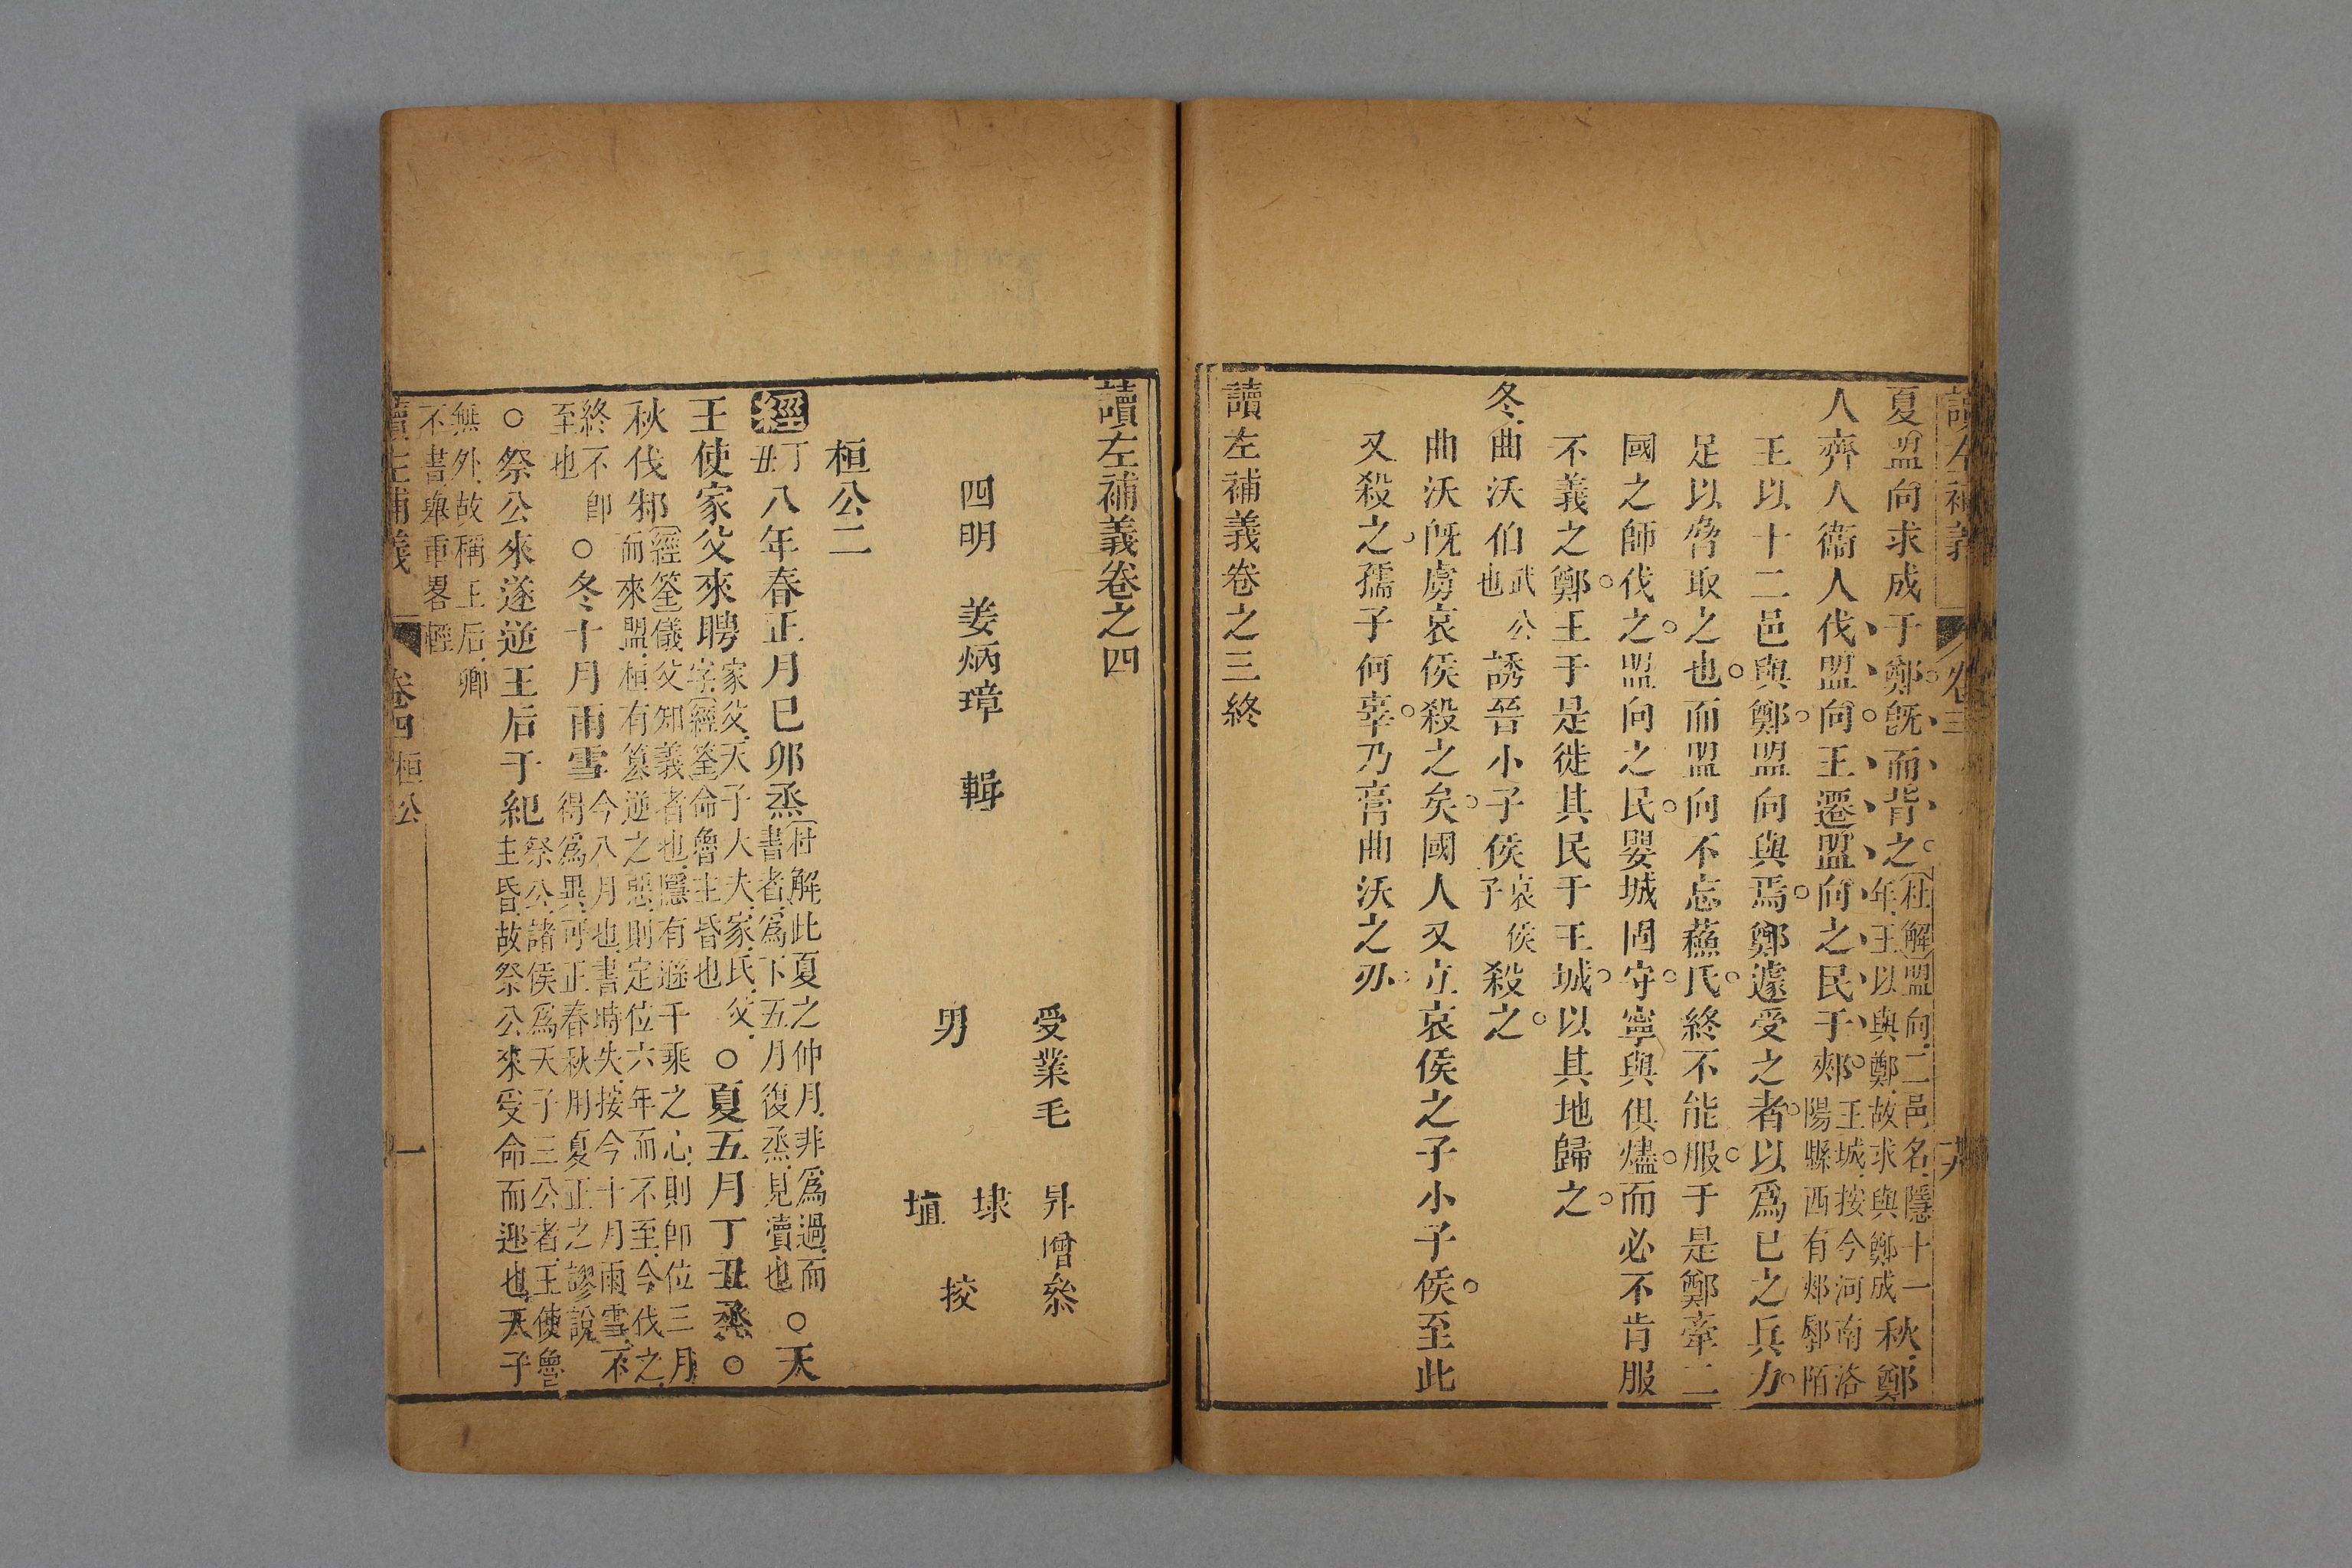 讀左補義
卷三
夏盟向求成于鄭旣而背之杜解盟向二邑名隱十一年王以與鄭故求與鄭成秋鄭
人齊人衞人伐盟向王遷盟向之民于郟王城按今河南洛陽縣西有郟鄏陌
王以十二邑與鄭盟向與焉鄭遽受之者以爲已之兵力
足以脅取之也而盟向不忘蘓氏終不能服于是鄭牽二
國之師伐之盟向之民嬰城固守寧與俱燼而必不肯服
不義之鄭王于是徙其民于王城以其地歸之
冬曲沃伯武公也誘晉小子侯哀侯子殺之
曲沃旣虜哀侯殺之矣國人又立哀侯之子小子侯至此
又殺之孺子何辜乃膏曲沃之刅
讀左補義卷之三終
讀左補義卷之四
受業毛
昇
增
叅
四明 姜炳璋 輯
男
埭
埴
挍
桓公二
經丁丑八年春正月已卯烝杜解此夏之仲月非爲過而書者爲下五月復烝見瀆也○天
王使家父來聘家父天子大夫家氏父字經筌命魯主昏也○夏五月丁丑烝○
秋伐邾經筌儀父知義者也隱有遜千乘之心則卽位三月而來盟桓有簒逆之惡則定位六年而不至今伐之
終不卽至也○冬十月雨雪今八月也書時失按今十月雨雪不得爲異可正春秋用夏正之謬說
○祭公來遂逆王后于紀祭公諸侯爲天子三公者王使魯主昏故祭公來受命而逆也天子
無外故稱王后卿不書舉重畧輕
讀左補義
卷四 桓公
一